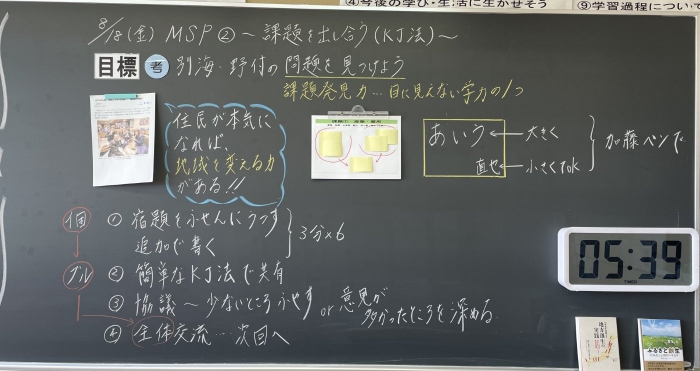 ④今後の学び・生活に生かせそう
⑨学習過程につい
8/18(金) MSP② ～課題を出し合う(KJ法)～
目標 考 別海・野付の問題を見つけよう
課題発見力…目に見えない学力の1つ
住民が本気に
なれば、
地域を変える力
がある!!
あいう ← 大きく
直也 ← 小さくてOK
加藤ペンで
個 ① 宿題をふせんにうつす
追加で書く
3分×6
グル ② 簡単なKJ法で共有
③ 協議～少ないところふやす or 意見が
多かったところを深める
④ 全体交流…次回へ
05:39
TIMER